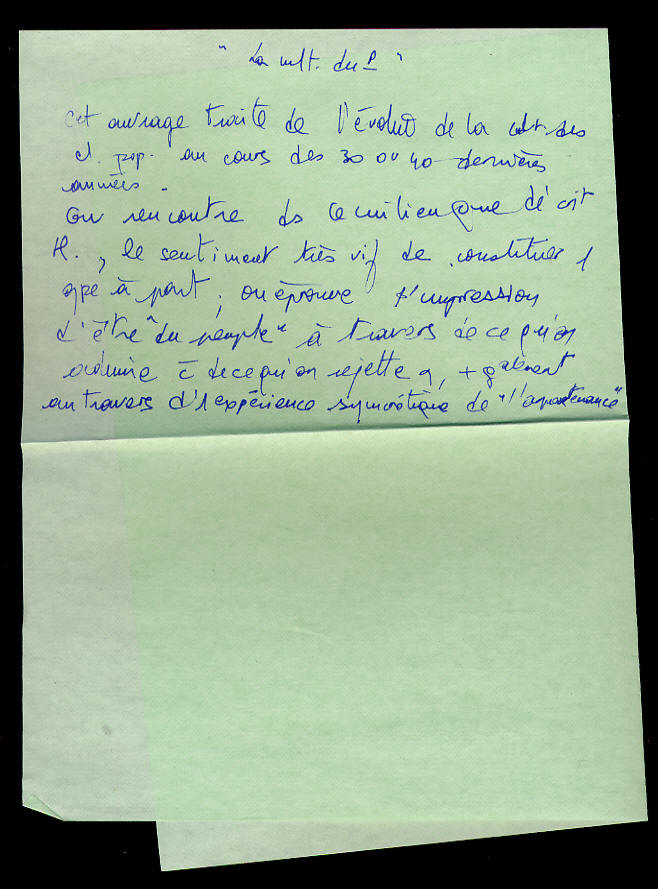 " La cult. du P "
Cet ouvrage traite de l'évolut° de la cult. des
cl. pop. au cours des 30 ou 40 dernières
années.
On rencontre ds ce milieu que décrit
H., le sentiment très vif de constituer 1
gpe à part ; on éprouve l'impression
d'être "du peuple" à travers de ce qu'on
admire de ce qu'on rejette , + gralement
au travers d'1 expérience de "l'appartenance"